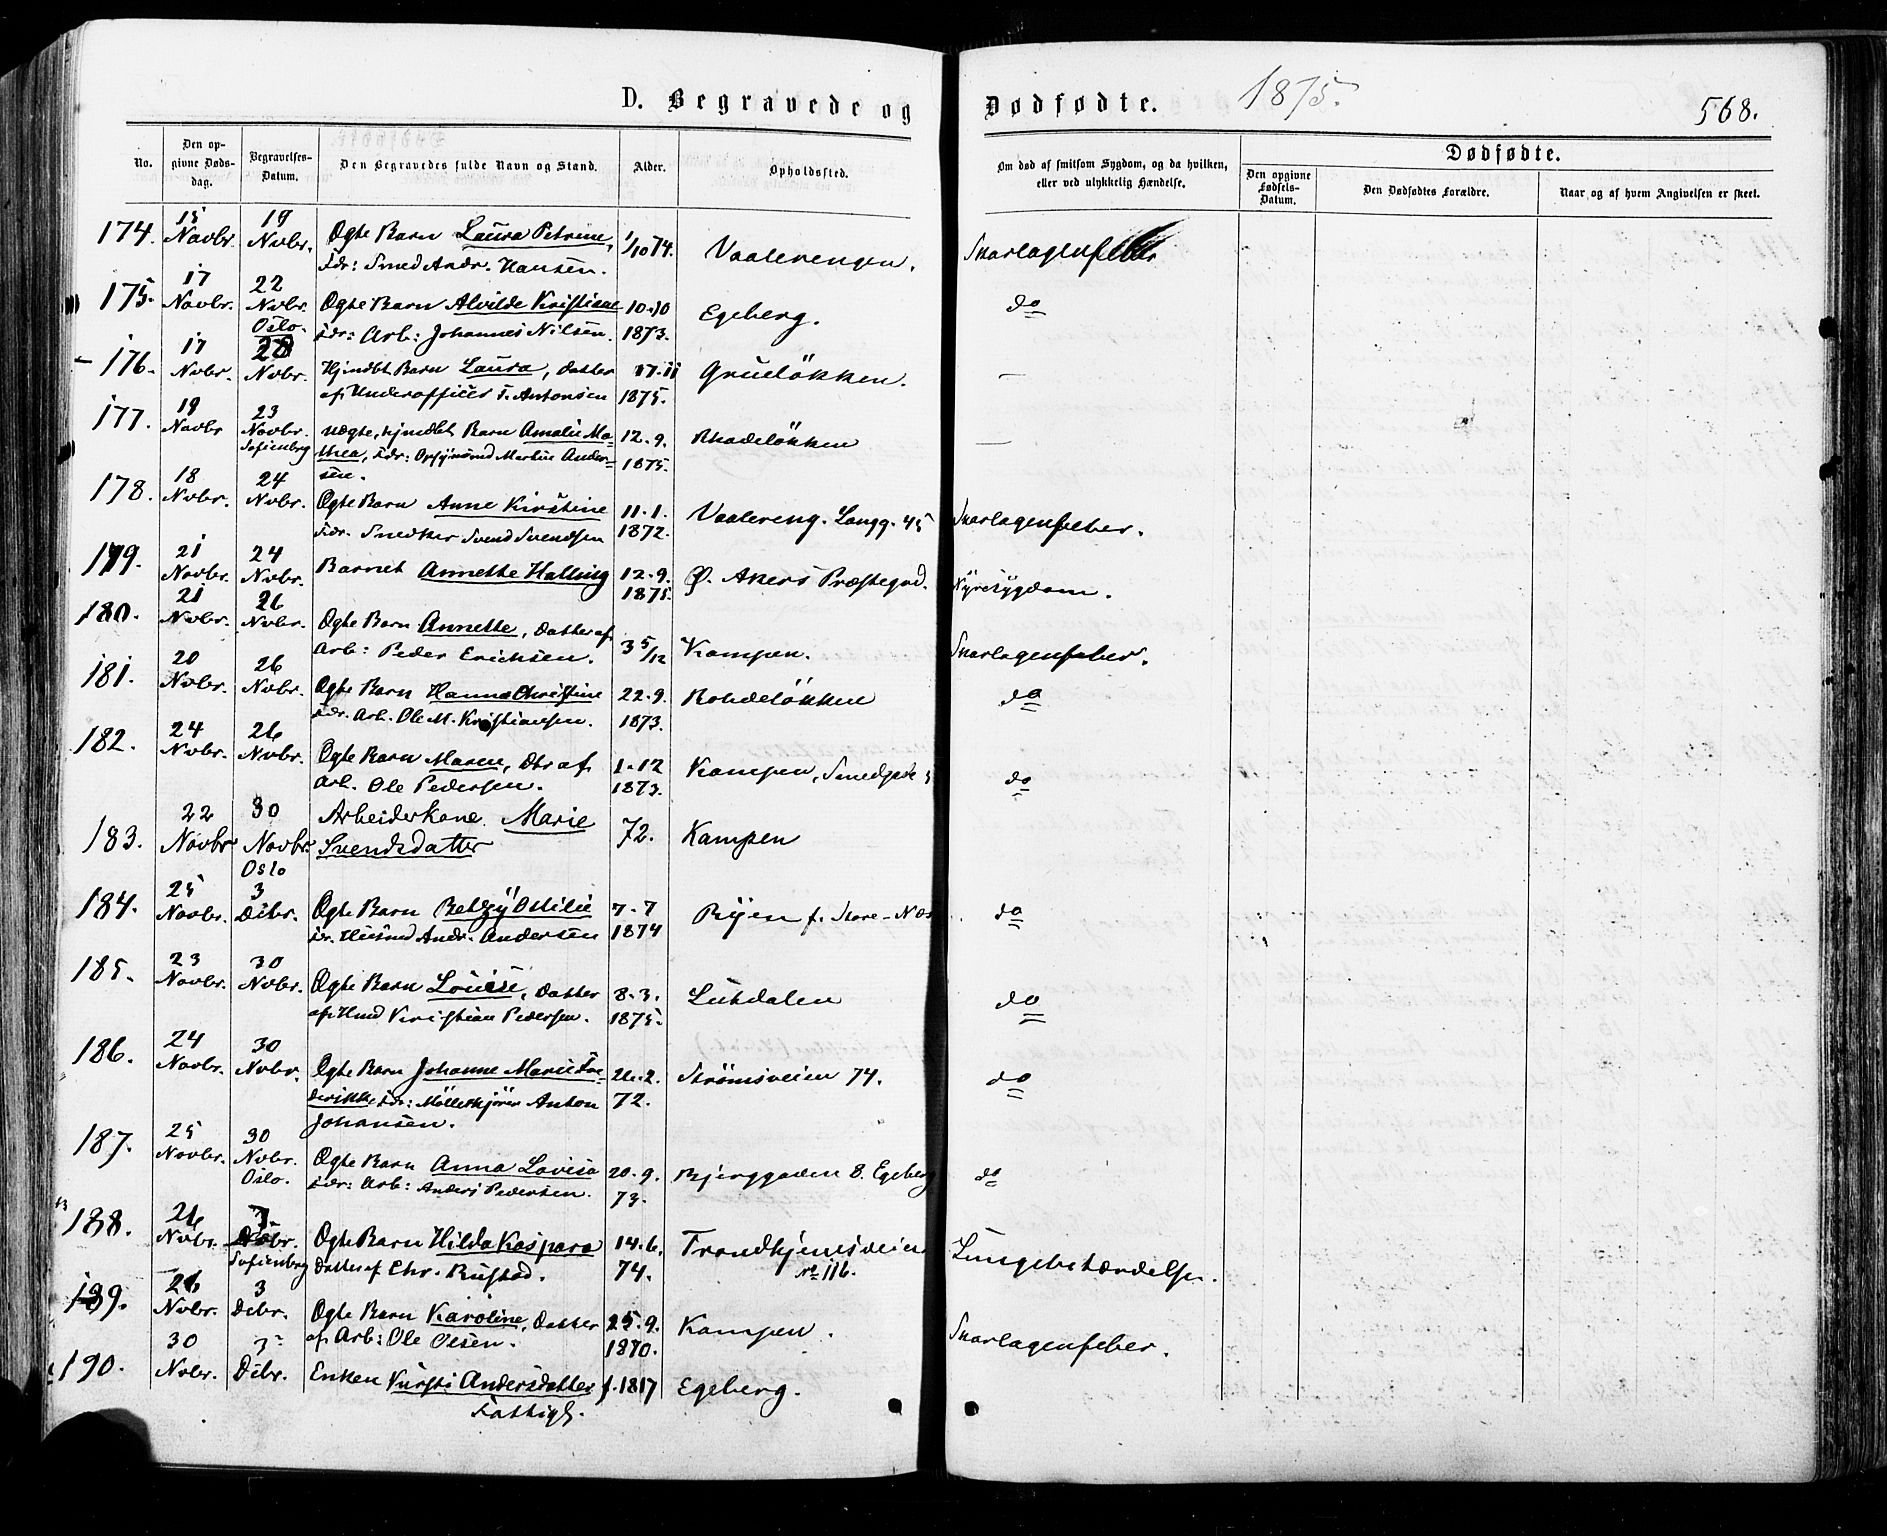 D. Begravede og Dødfødte. 1875. 568.
No.
Den opgivne Døds-
dag.
Begravelses-
Datum.
Den Begravedes fulde Navn og Stand.
Alder.
Opholdssted.
Om død af smitsom Sygdom, og da hvilken,
eller ved ulykkelig Hændelse.
Dødfødte.
Den opgivne
Fødsels-
Datum.
Den Dødfødtes Forældre.
Naar og af hvem Angivelsen er skeet.
174. 15 Novbr. 19 Nvbr. Ægte Barn Laura Petrine, 1/10 74. Vaalerengen. Skarlagenfeber
Fdr: Smed Andr. Hansen.
175. 17 Novbr. 22 Nvbr. Oslo. Ægte Barn Alvilde Kristiane 10-10 1873. Egeberg. do
Fdr: Arb: Johannes Nilsen.
176. 17 Nvbr. 28 Novbr. Hjmdbt Barn Laura, Datter 17-11 1875. Grueløkken. —
af Underofficer T. Antonsen
177. 19 Novbr 23 Novbr. Sofienberg Uægte, hjmdbt Barn Amalie Ma- 12-9. 1875. Rhodeløkken —
thea, Fdr: Opsynsmd Martin Ander-
sen.
178. 18 Nvbr. 24 Novbr. Ægte Barn Anne Kirstine 11-1. 1872. Vaalereng. Langg. 45 Skarlagenfeber.
Fdr. Snedker Svend Svendsen
179. 21 Novbr. 24 Novbr. Barnet Annette Halling 12-9. 1875. Ø. Akers Præstegrd. Nyresygdom.
180. 21 Novbr. 26 Nvbr. Ægte Barn Annette, Datter af 3 5/12 Kampen. Skarlagenfeber.
Arb: Peder Erichsen.
181. 20 Nvbr. 26 Nvbr. Ægte Barn Hanna Christine 22-9. 1873. Rohdeløkken do
Fdr. Arb. Ole M. Kristiansen.
182. 24 Novbr. 26 Nvbr. Ægte Barn Maren, Dtr af 1-12 1873. Kampen, Smedgade 5 do
Arb. Ole Pedersen.
183. 22 Novbr 30 Novbr. Oslo Arbeiderkone Marie 72. Kampen
Svendsdatter
184. 25 Novbr. 3 Debr. Ægte Barn Betzy Ottilie 7-7 1874 Ryen f. Store-Næs do
Fdr. Husmd Andr. Andersen
185. 23 Novbr. 30 Nvbr. Ægte Barn Louise, Datter 8-3. 1875. Lutdalen do
af Hmd Kristian Pedersen.
186. 24 Novbr. 30 Nvbr. Ægte Barn Johanne Marie Fre- 26-2. 72. Strømsveien 74. do
derikke, Fdr: Møllekjører Anton
Johansen.
187. 25 Novbr. 30 Nvbr. Oslo. Ægte Barn Anna Lovisa 20-9. 73. Bjerggaden 8. Egeberg do
Fdr: Arb: Anders Pedersen.
188. 26 Nvbr. Debr. Sofienberg Ægte Barn Hilda Kaspara 14-6. 74. Trondhjemsveien Lungebetændelse.
Datter af Chr. Rustad. No 116.
189. 26 Nvbr. 3 Debr. Ægte Barn Karoline, Datter 25-9. 1870. Kampen. Skarlagenfeber.
af Arb: Ole Olsen.
190. 30 Nvbr. 3 Debr. Enken Kirsti Andersdatter f. 1817 Egeberg.
Fattigl.